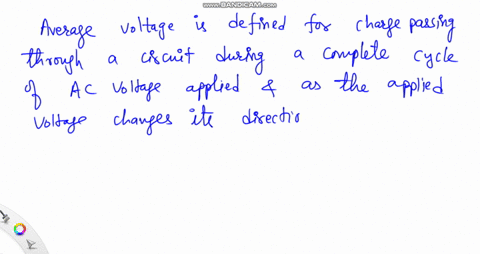 WWW.BANDICAM.COM
Average voltage is defined for charge passing
through a circuit during a complete cycle
of AC voltage applied & as the applied
voltage changes its directio